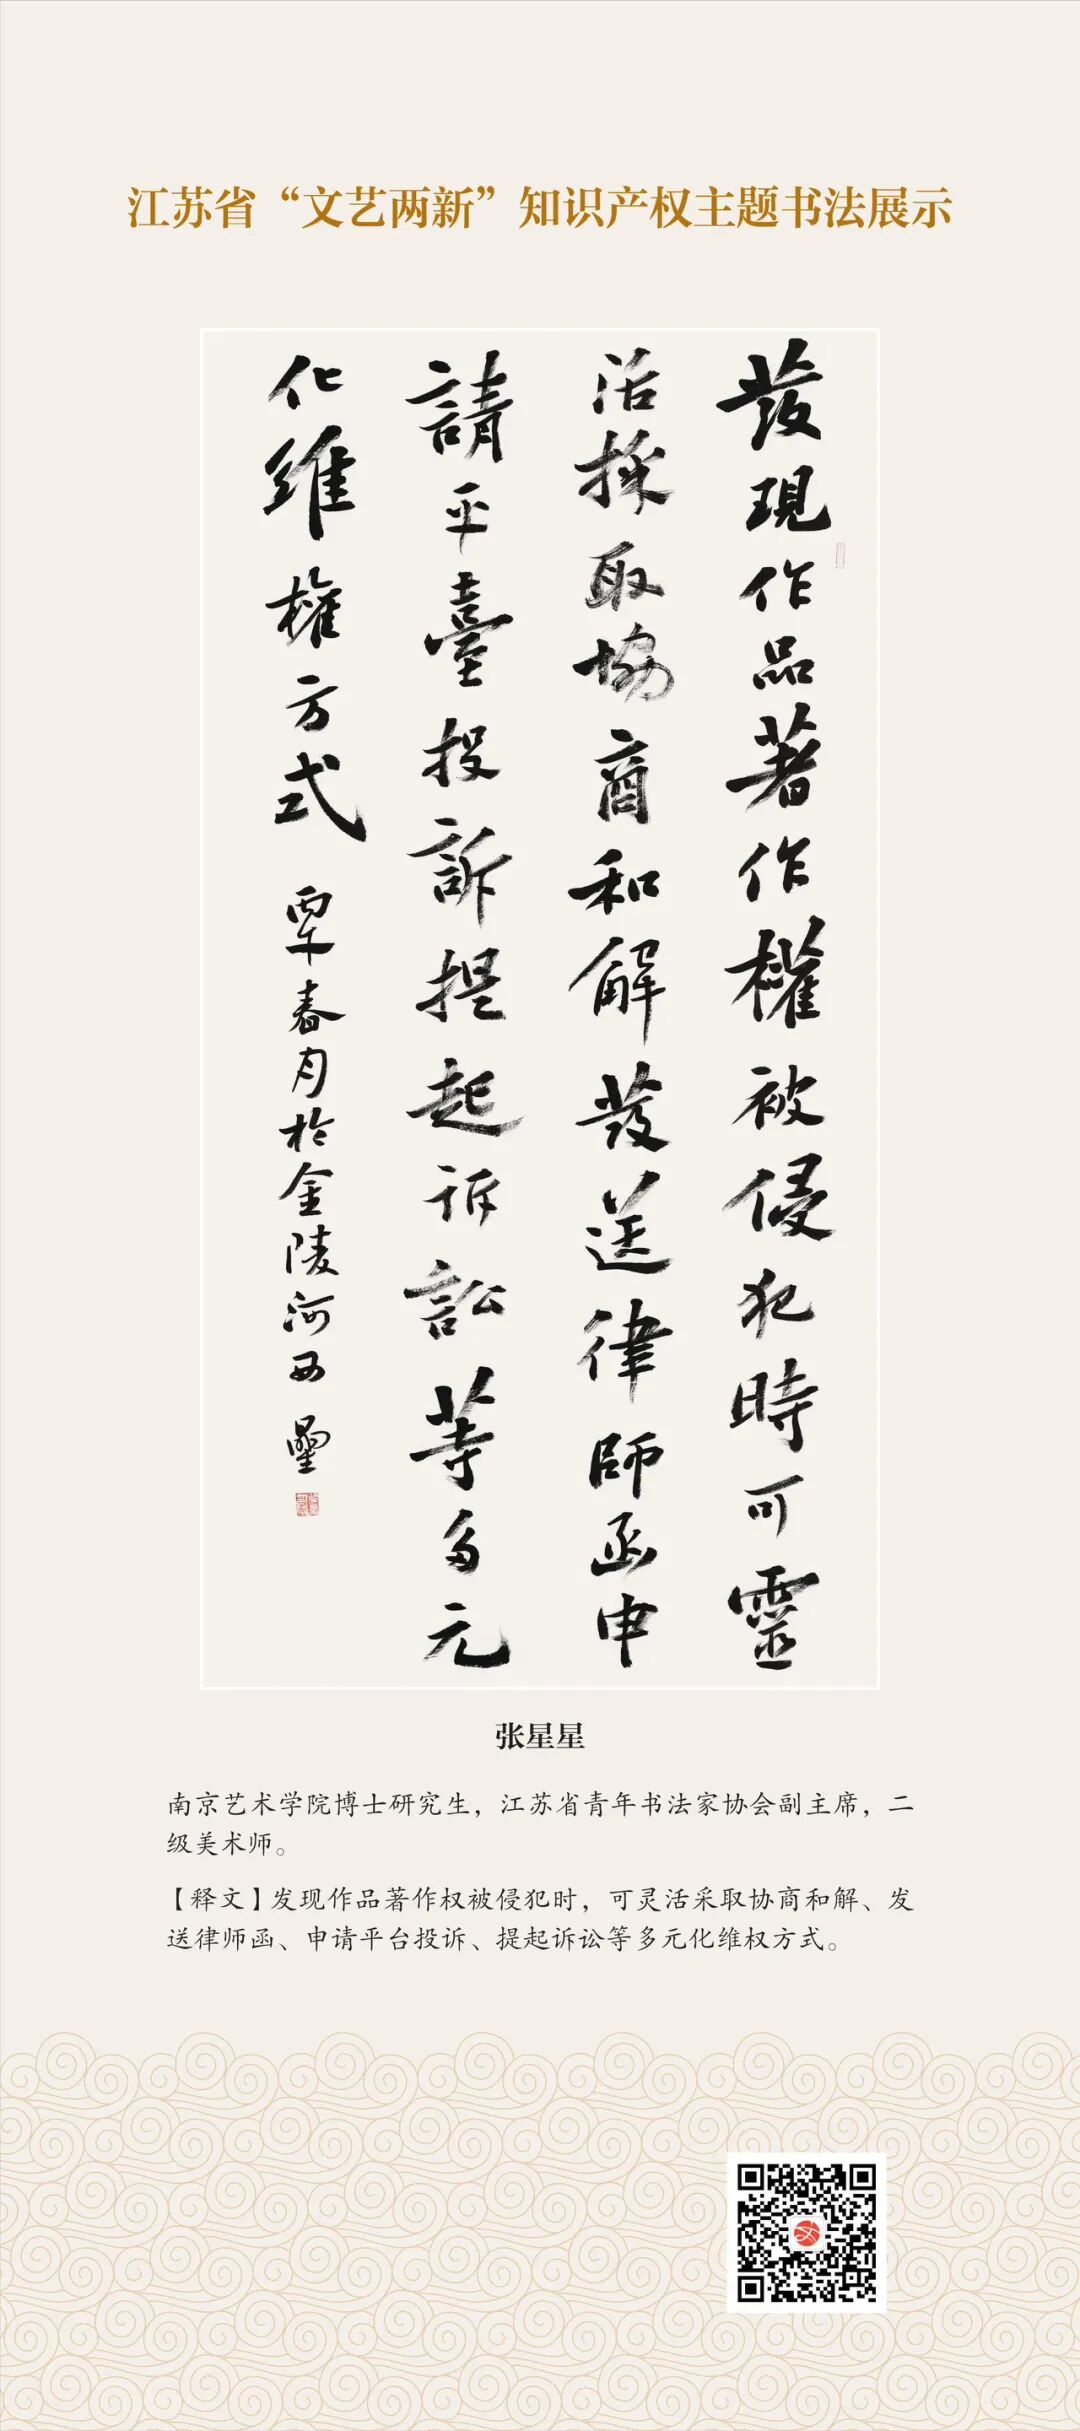 江苏省“文艺两新”知识产权主题书法展示
發現作品著作權被侵犯時可靈
活採取協商和解發送律師函申
請平臺投訴提起訴訟等多元
化維權方式 丙午春月於金陵河西
张星星
南京艺术学院博士研究生，江苏省青年书法家协会副主席，二
级美术师。
【释文】发现作品著作权被侵犯时，可灵活采取协商和解、发
送律师函、申请平台投诉、提起诉讼等多元化维权方式。